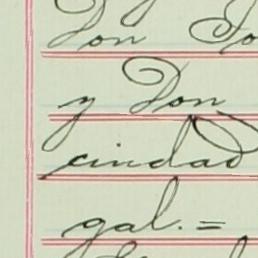 Don
y Don
cindad
gal.=